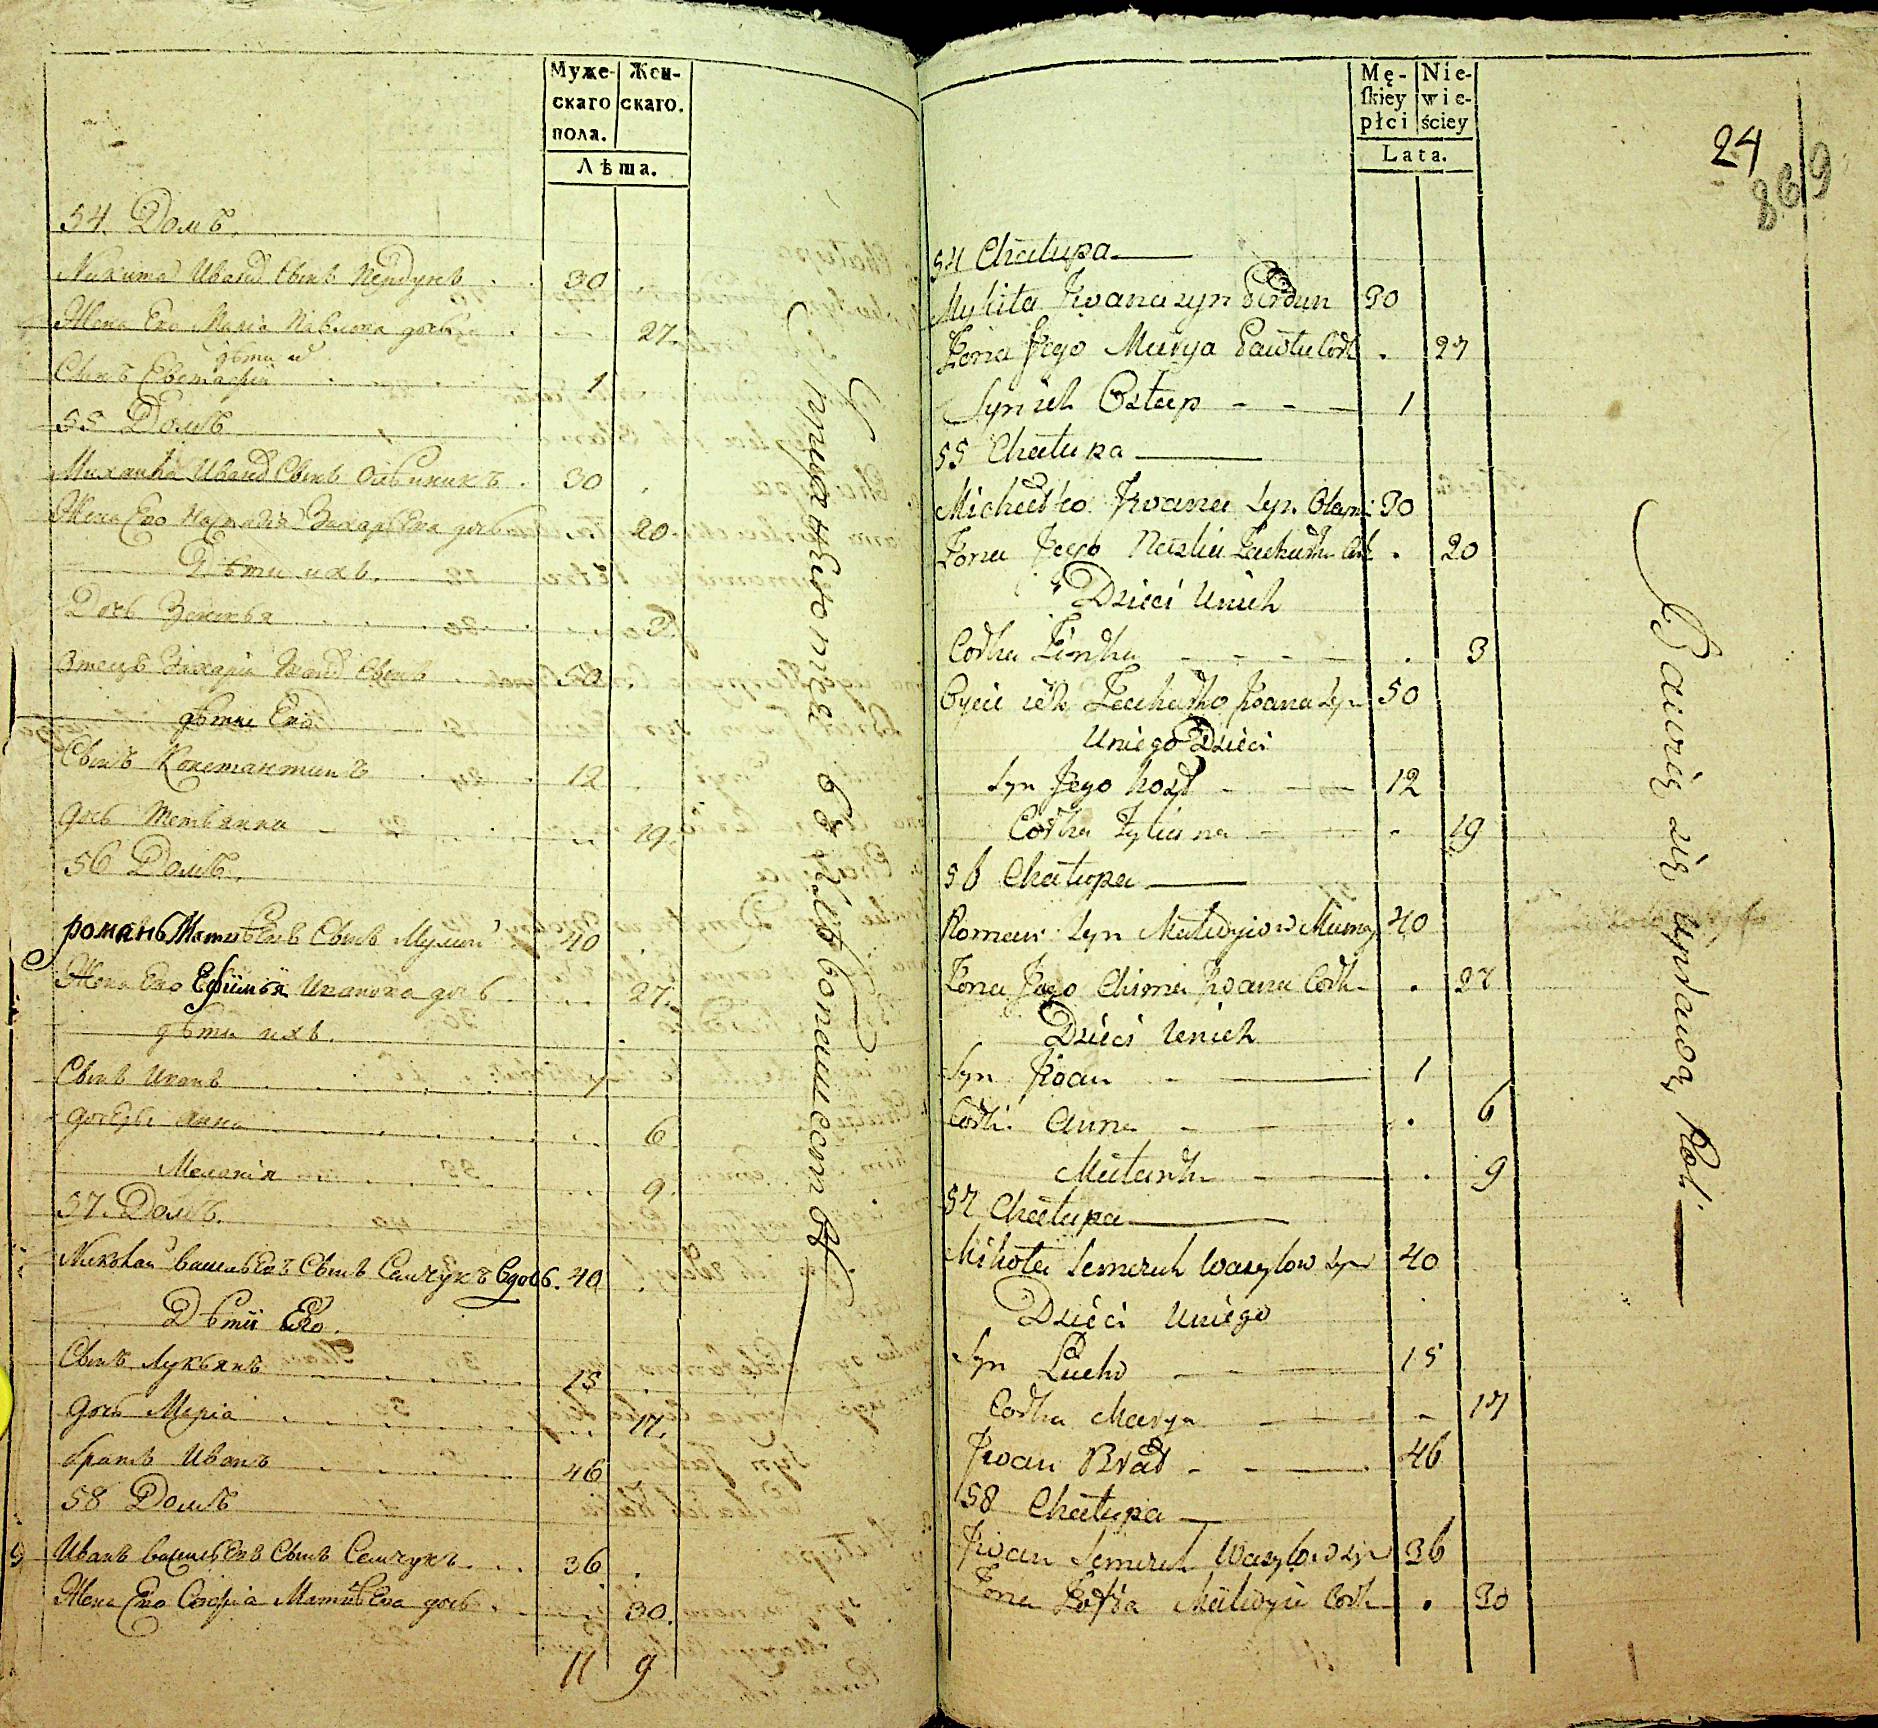 Муже-
скаго
пола.
Жен-
скаго.
Лѣта.
54. Домъ.
Никита Иванд Сынъ 30
Жена Его Марія Павлова дочь 27.
дѣти и
Сынъ Евстафій 1
55 Домъ
Михайла Иванд Сынъ Олѣйникъ 30
Жена Его Наталія Захарьева дочь 20.
Дѣти ихъ.
Дочь Зеновья 3.
Отецъ Захарій Иванд Сынъ 50
дѣти Его
Сынъ Константинъ 12
дочь Тетьянна 19.
56 Домъ.
романъ Матвѣевъ Сынъ 40
Жена Его Ефимья Иванова дочь 27.
дѣти ихъ.
Сынъ Иванъ 1
дочери Анна 6
Меланія 9.
57. Домъ.
Николай васильевъ Сынъ Самчукъ вдовъ. 40
Дѣтіи Его.
Сынъ Лукьянъ 15
дочь Марія 17.
братъ Иванъ 46
58 Домъ
Иванъ васильевъ Сынъ Самчукъ 36
Жена Его Софіа Матвѣева дочь 30.
11 9
упражняются в хлѣбопашествѣ
Mę-
ſkiey
płci
Nie-
wie-
ściey
Lata.
24
869
54 Chałupa
Mykita Jwana syn 30
Żona Jego Marya Pawła Córk 27
Syn ich Ostap 1
55 Chałupa
Michałko Jwana Syn 30
Żona Jego Nastia Zacharka Cork 20
Dzieci Unich
Corka Zinka 3
Oyciec ich Zacharko Jwana Syn 50
Uniego Dzieci
Syn Jego Kost 12
Corka Tytiana 19
56 Chałupa
Roman Syn Matwyiow 40
Żona Jego Chima Jwana Cork 27
Dzieci Unich
Syn Jwan 1
Corki Anna 6
Małanka 9
57 Chałupa
Mikołai Semczuk Wasylow Syn 40
Dzieci Uniego
Syn Łucko 15
Corka Marya 17
Jwan Brat 46
58 Chałupa
Jwan Semczuk Wasylow Syn 36
Żona Zofia Matwyia Cork 30
Bawią się uprawą Roli